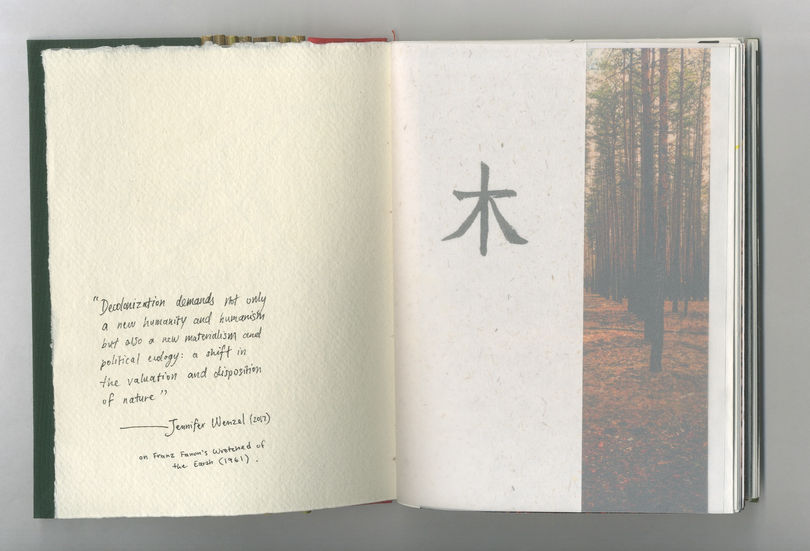 "Decolonization demands not only
a new humanity and humanism
but also a new materialism and
political ecology: a shift in
the valuation and disposition
of nature"
Jennifer Wenzel (2017)
on Franz Fanon's Wretched of
the Earth (1961).
木